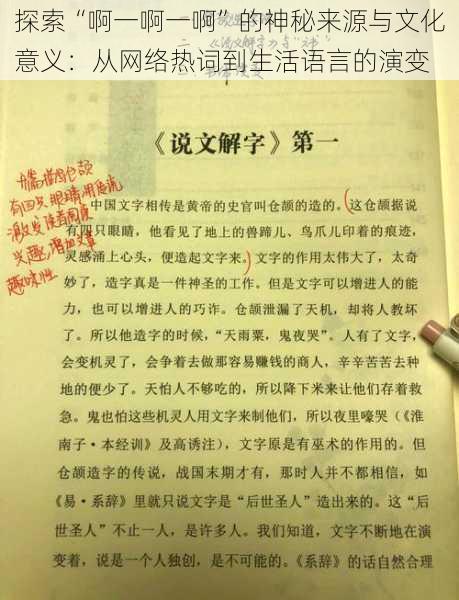 探索“啊一啊一啊”的神秘来源与文化
意义：从网络热词到生活语言的演变
《说文解字》第一
开篇描写仓颉
有四只眼睛,用传说
激发读者阅读
兴趣,增加文章
趣味性
中国文字相传是黄帝的史官叫仓颉的造的。这仓颉据说
有四只眼睛，他看见了地上的兽蹄儿、鸟爪儿印着的痕迹，
灵感涌上心头，便造起文字来。文字的作用太伟大了，太奇
妙了，造字真是一件神圣的工作。但是文字可以增进人的能
力，也可以增进人的巧诈。仓颉泄漏了天机，却将人教坏
了。所以他造字的时候，“天雨粟，鬼夜哭”。人有了文字，
会变机灵了，会争着去做那容易赚钱的商人，辛辛苦苦去种
地的便少了。天怕人不够吃的，所以降下米来让他们存着救
急。鬼也怕这些机灵人用文字来制他们，所以夜里嚎哭（《淮
南子·本经训》及高诱注），文字原是有巫术的作用的。但
仓颉造字的传说，战国末期才有，那时人并不都相信，如
《易·系辞》里就只说文字是“后世圣人”造出来的。这“后
世圣人”不止一人，是许多人。我们知道，文字不断地在演
变着，说是一个人独创，是不可能的。《系辞》的话自然合理